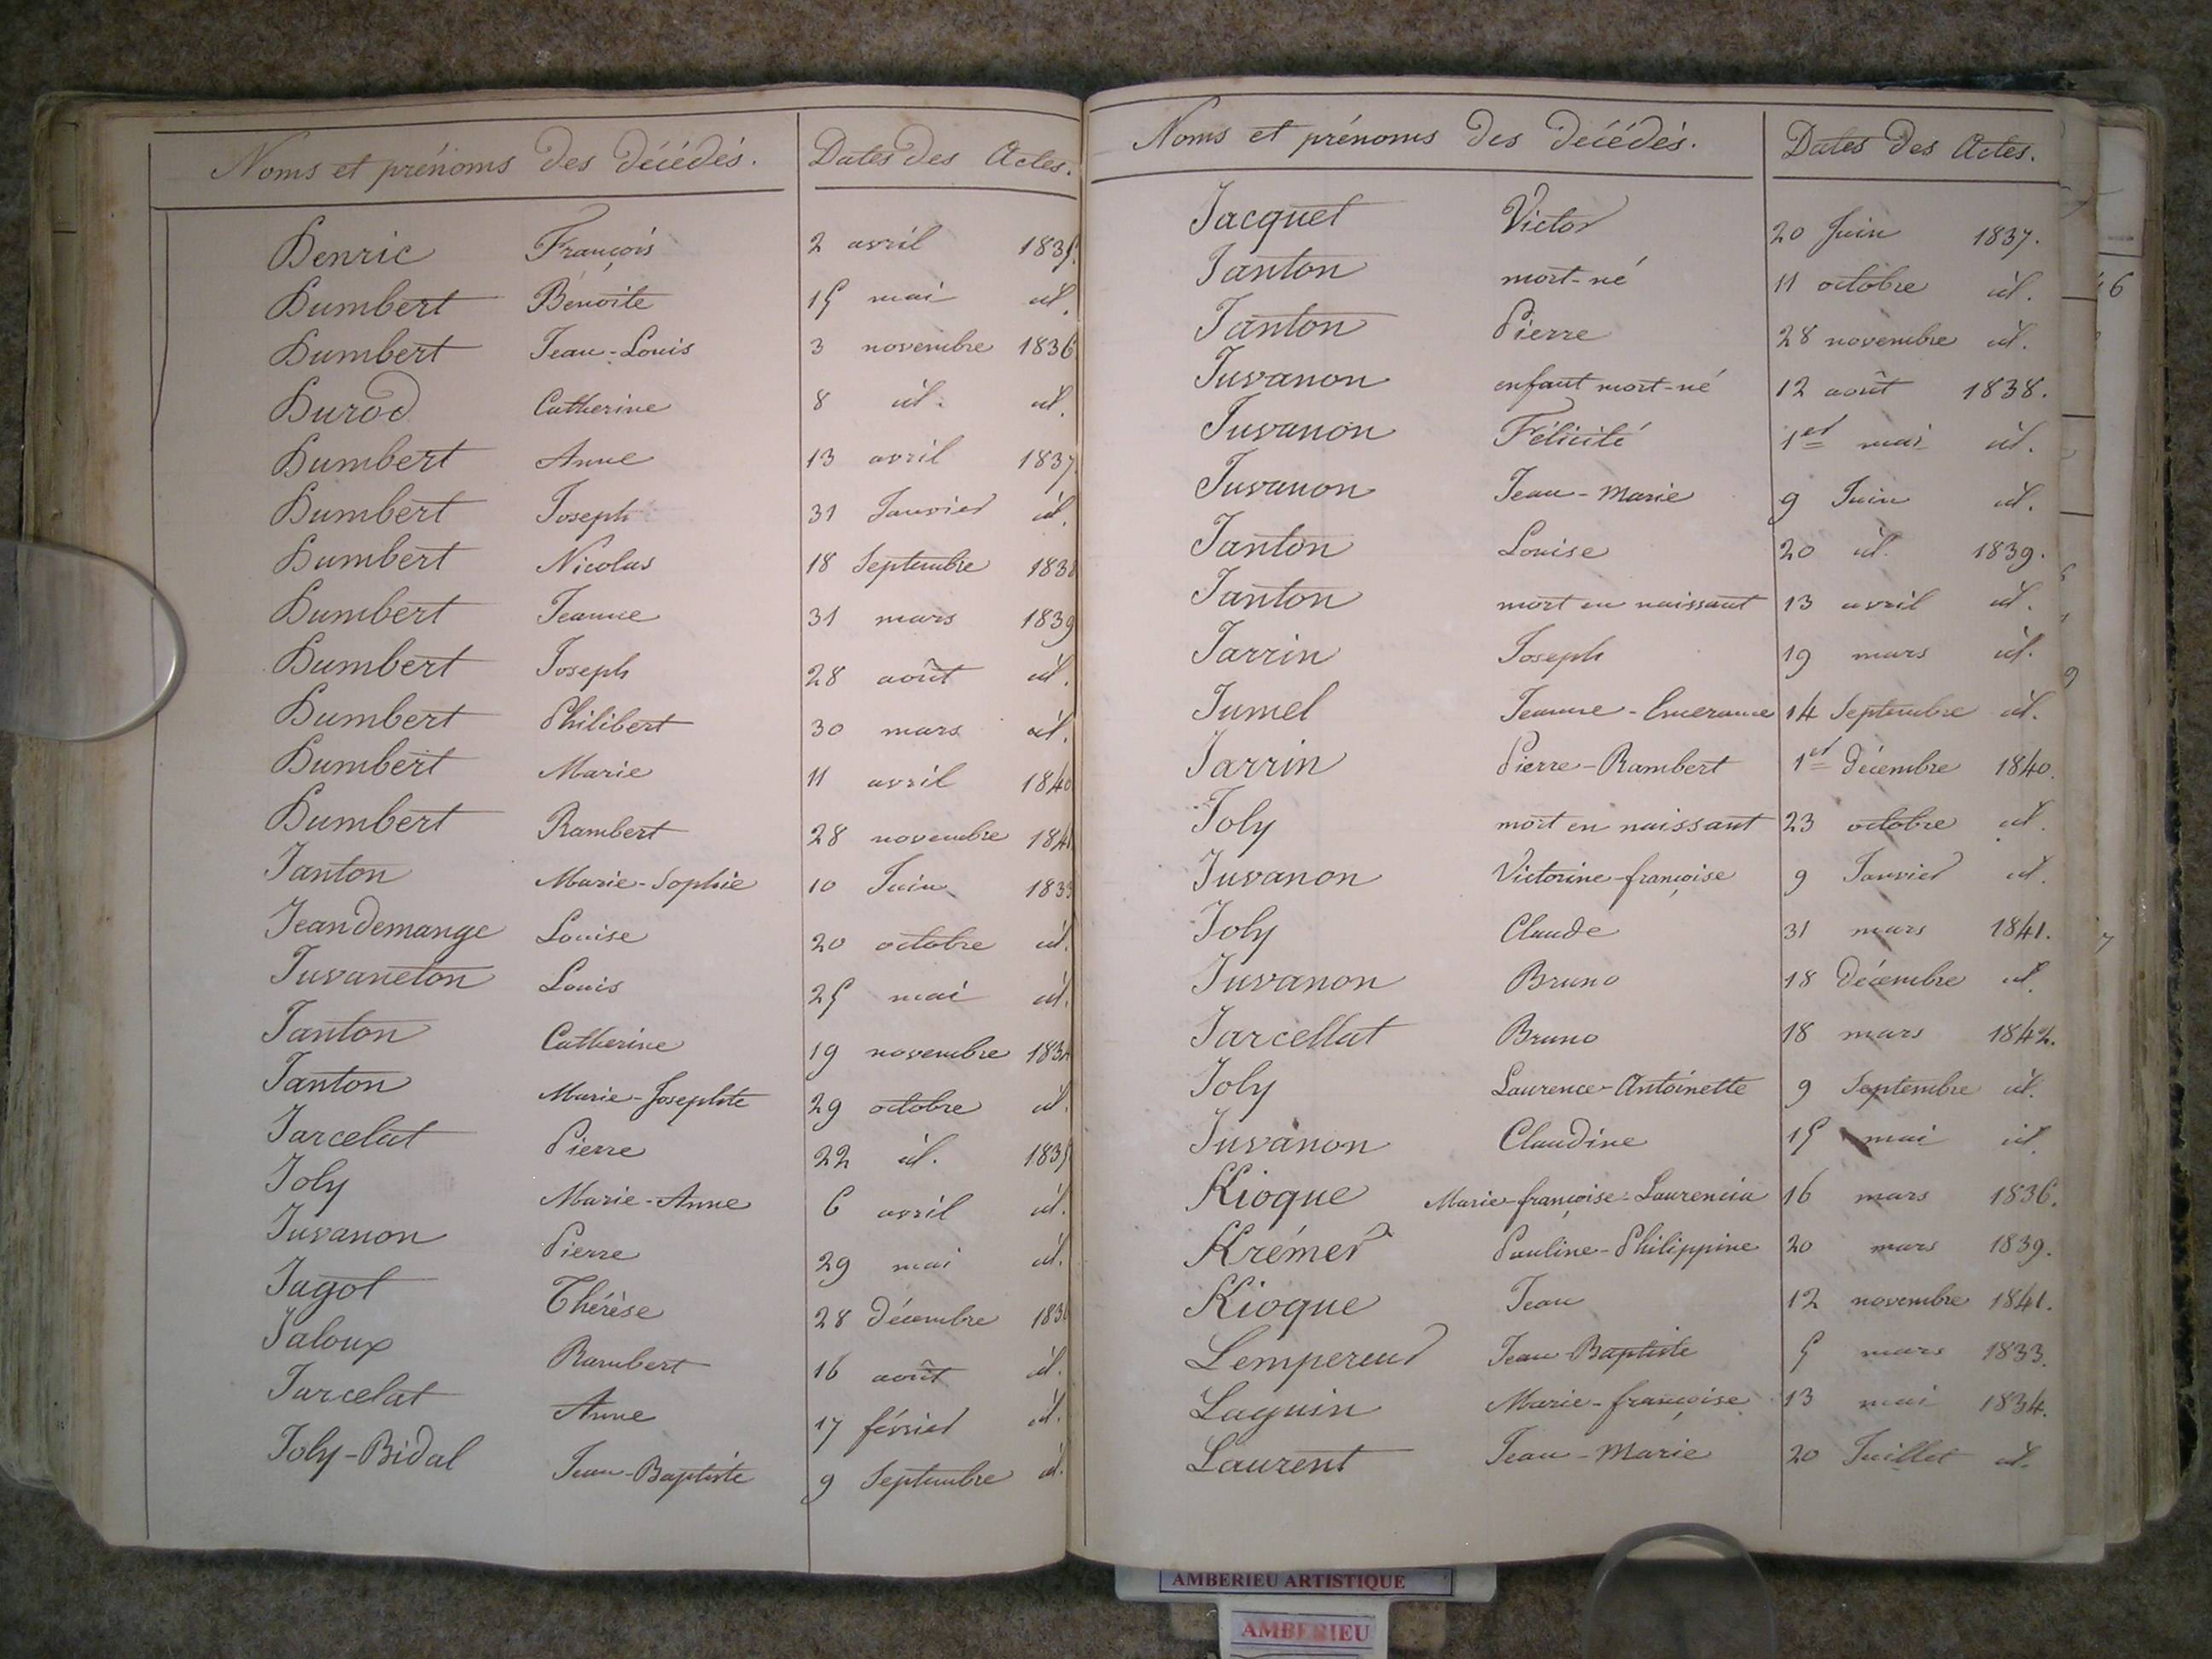 Noms et prénoms des décédés. Dates des Actes.
Henric François 2 avril 1835.
Humbert Benoite 15 mai id.
Humbert Jean-Louis 3 novembre 1836
Hurod Catherine 8 id. id.
Humbert Anne 13 avril 1837
Humbert Joseph 31 Janvier id.
Humbert Nicolas 18 Septembre 1838
Humbert Jeanne 31 mars 1839
Humbert Joseph 28 août id.
Humbert Philibert 30 mars id.
Humbert Marie 11 avril 1840
Humbert Rambert 28 novembre
Janton Marie-Sophie 10 Juin 1833
Jeandemange Louise 20 octobre id.
Juvaneton Louis 25 mai id.
Janton Catherine 19 novembre 1834
Janton Marie-Josephte 29 octobre id.
Jarcelat Pierre 22 id. 1835
Joly Marie-Anne 6 avril id.
Juvanon Pierre 29 mai id.
Jagot Thérèse 28 décembre 1836
Jaloux Rambert 16 août id.
Jarcelat Anne 17 février id.
Joly-Bidal Jean-Baptiste 9 Septembre id.
Noms et prénoms des décédés. Dates des Actes.
Jacquet Victor 20 Juin 1837.
Janton mort-né 11 octobre id.
Janton Pierre 28 novembre id.
Juvanon enfant mort-né 12 août 1838.
Juvanon Félicité 1er mai id.
Juvanon Jean-Marie 9 Juin id.
Janton Louise 20 id. 1839.
Janton mort en naissant 13 avril id.
Jarrin Joseph 19 mars id.
Jumel Jeanne-Emerance 14 Septembre id.
Jarrin Pierre-Rambert 1er décembre 1840.
Joly mort en naissant 23 octobre id.
Juvanon Victorine-françoise 9 Janvier id.
Joly Claude 31 mars 1841.
Juvanon Bruno 18 Décembre id.
Jarcellat Bruno 18 mars 1842.
Joly Laurence-Antoinette 9 Septembre id.
Juvanon Claudine 15 mai id.
Kioque Marie-françoise-Laurencia 16 mars 1836.
Krémer Pauline-Philippine 20 mars 1839.
Kioque Jean 12 novembre 1841.
Lempereur Jean-Baptiste 5 mars 1833.
Laguin Marie-françoise 13 mai 1834.
Laurent Jean-Marie 20 Juillet id.
AMBERIEU ARTISTIQUE
AMBERIEU